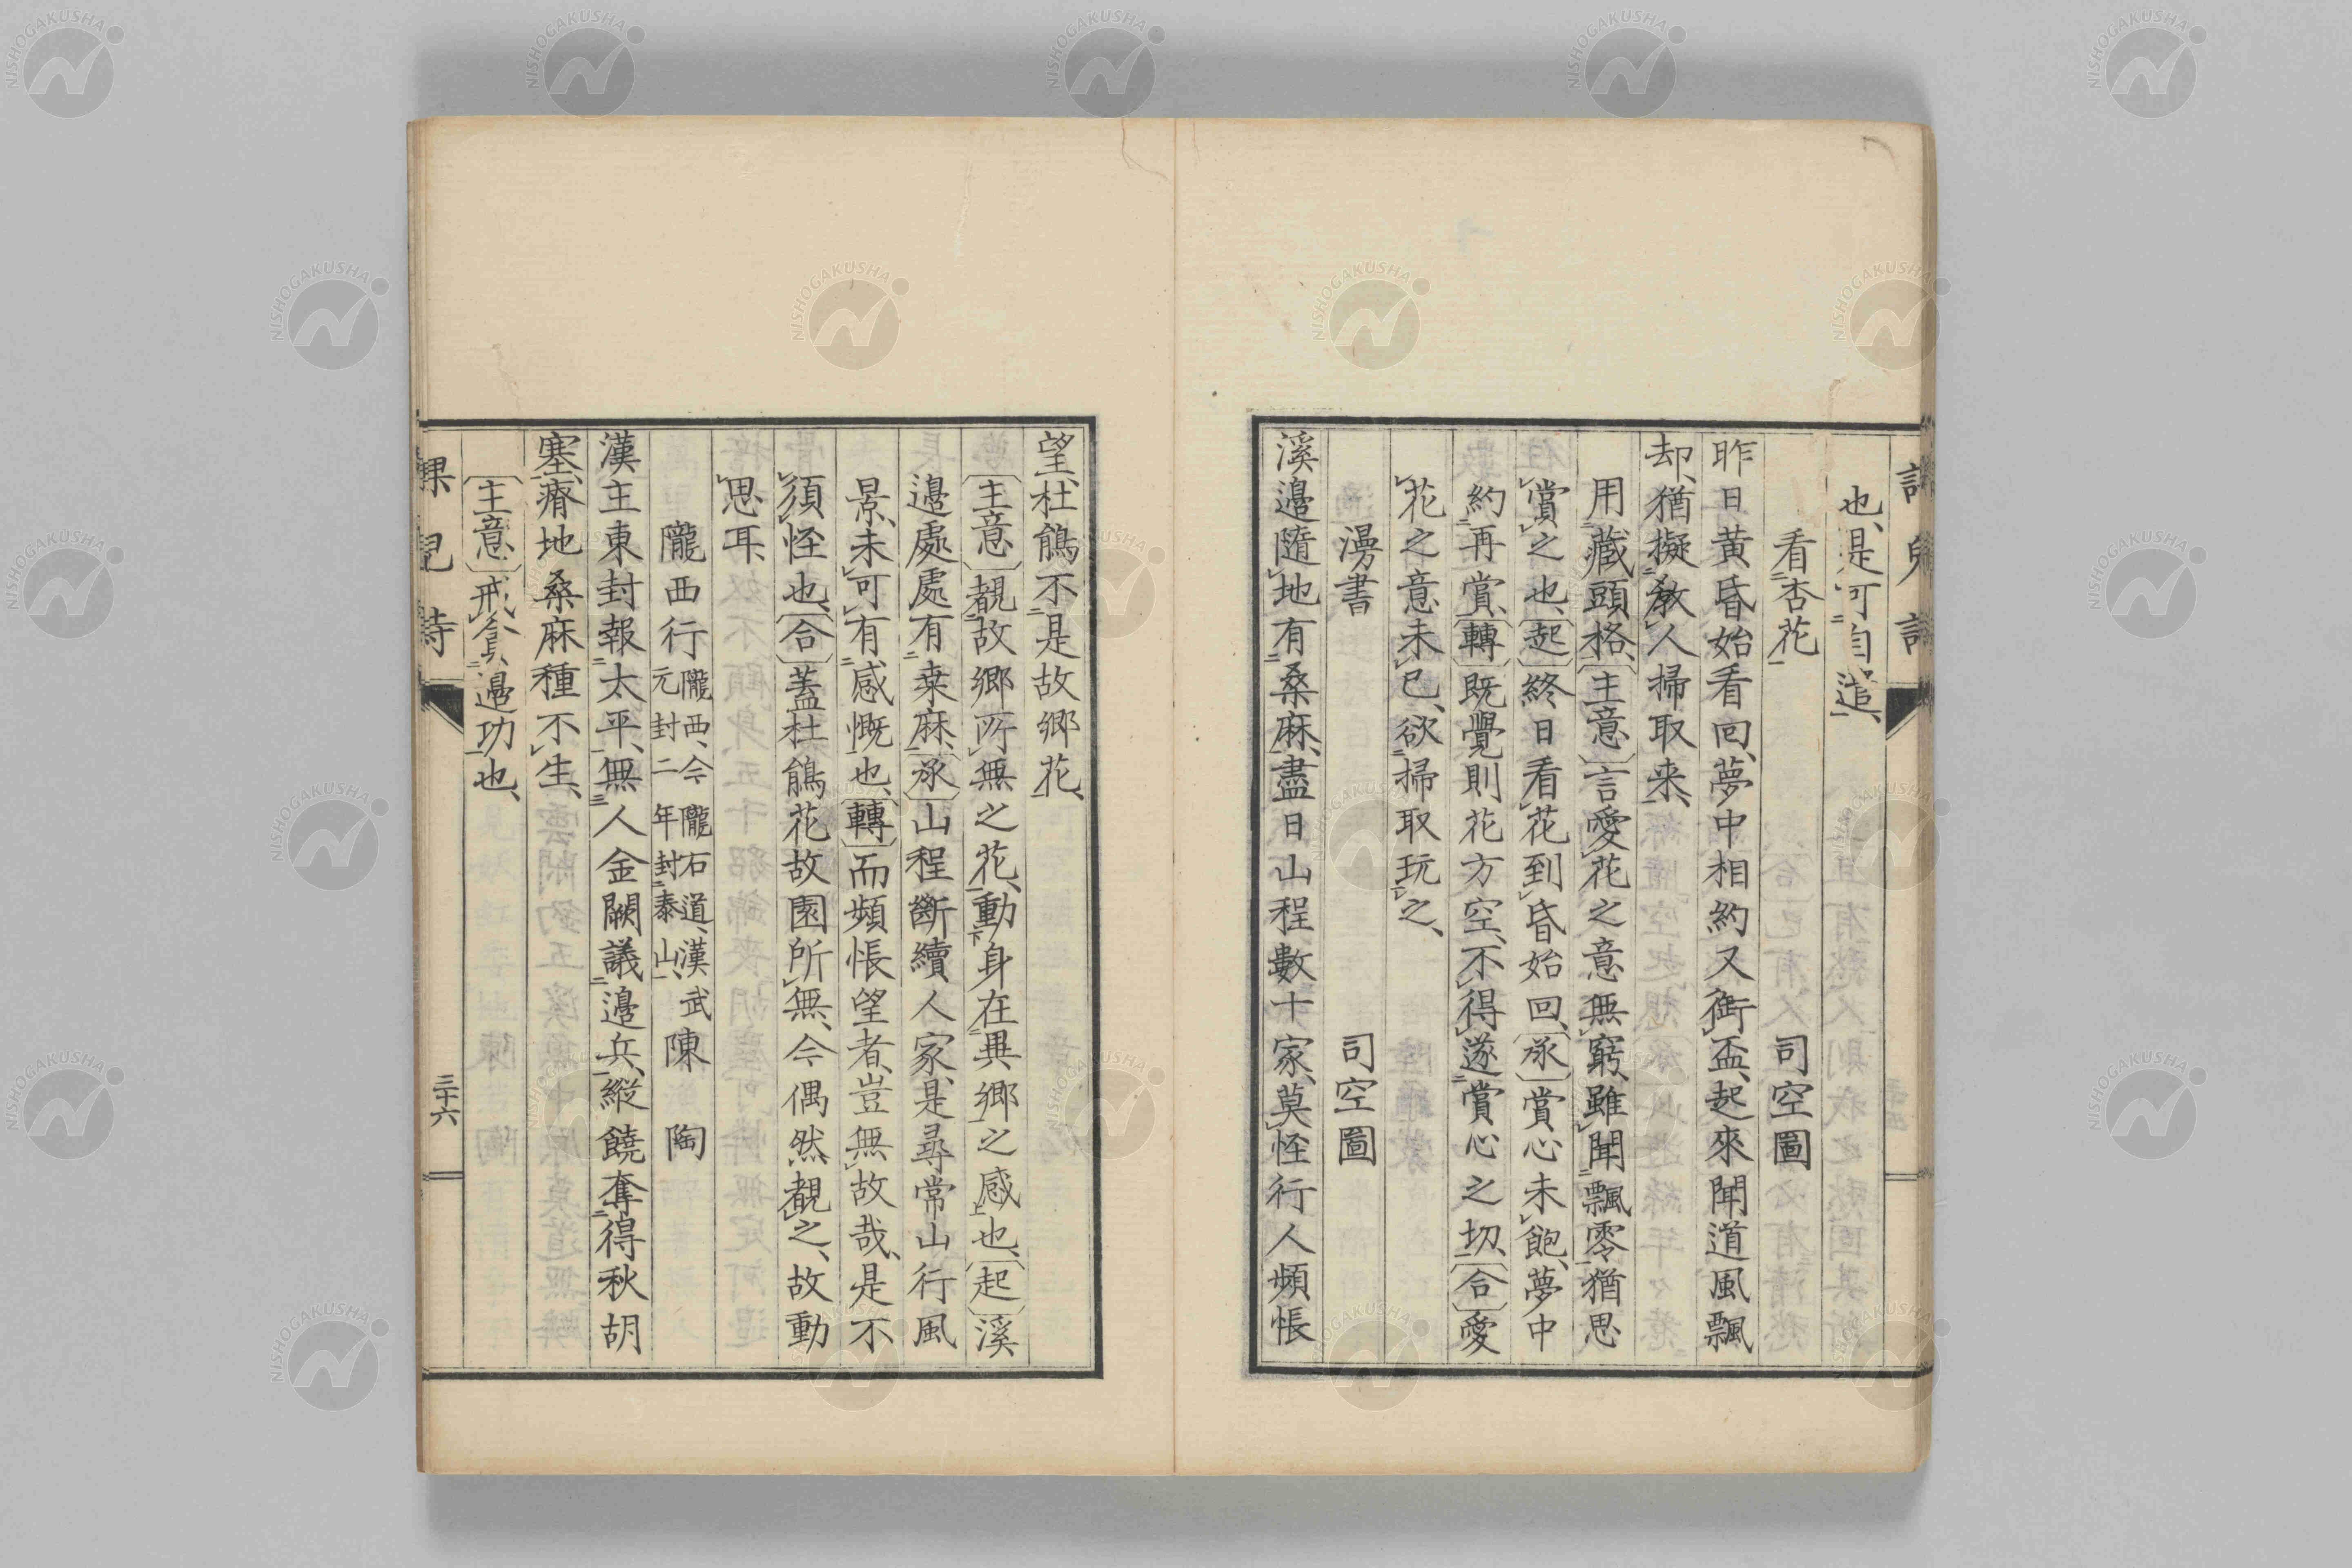 也、是可自遣、
看杏花　司空圖
昨日黄昏始看回、夢中相約又銜盃、起來聞道風飄
却、猶擬教人掃取来、
用藏頭格、〔主意〕言愛花之意無窮、雖聞飄零猶思
賞之也、〔起〕終日看花到昏始回、〔承〕賞心未飽、夢中
約再賞、〔轉〕既覺則花方空、不得遂賞心之切、〔合〕愛
花之意未已、欲掃取玩之、
漫書　司空圖
溪邉隨地有桑麻、盡日山程數十家、莫怪行人頻悵
望、杜鵑不是故郷花、
〔主意〕覩故郷所無之花、動身在異郷之感也、〔起〕溪
邉處處有桒麻、〔承〕山程斷續人家、是尋常山行風
景、未可有感慨也、〔轉〕而頻悵望者、豈無故哉、是不
須怪也、〔合〕蓋杜鵑花故園所無、今偶然覩之、故動
思耳、
隴西行　隴西、今隴石道、漢武元封二年封泰山、　陳陶
漢主東封報太平、無人金闕議邉兵、縦饒奪得秋胡
塞、瘠地桑麻種不生、
〔主意〕戒貪邉功也、
課兒詩
三十六
NISHOGAKUSHA